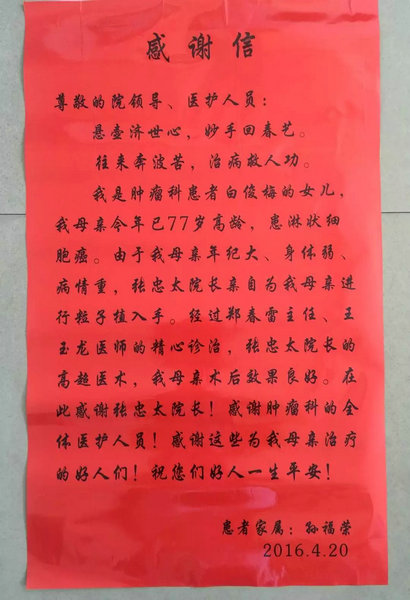 感谢信
尊敬的院领导、医护人员：
悬壶济世心，妙手回春艺。
往来奔波苦，治病救人功。
我是肿瘤科患者白俊梅的女儿，
我母亲今年已77岁高龄，患淋状细
胞癌。由于我母亲年纪大、身体弱、
病情重，张忠太院长亲自为我母亲进
行粒子植入手。经过郑春雷主任、王
玉龙医师的精心诊治，张忠太院长的
高超医术，我母亲术后效果良好。在
此感谢张忠太院长！感谢肿瘤科的全
体医护人员！感谢这些为我母亲治疗
的好人们！祝您们好人一生平安！
患者家属：孙福荣
2016.4.20